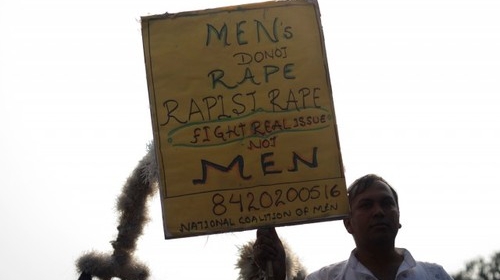 MEN's
DO NOT
RAPE
RAPIST RAPE
FIGHT REAL ISSUE
NOT
MEN
8420200516
NATIONAL COALITION OF MEN